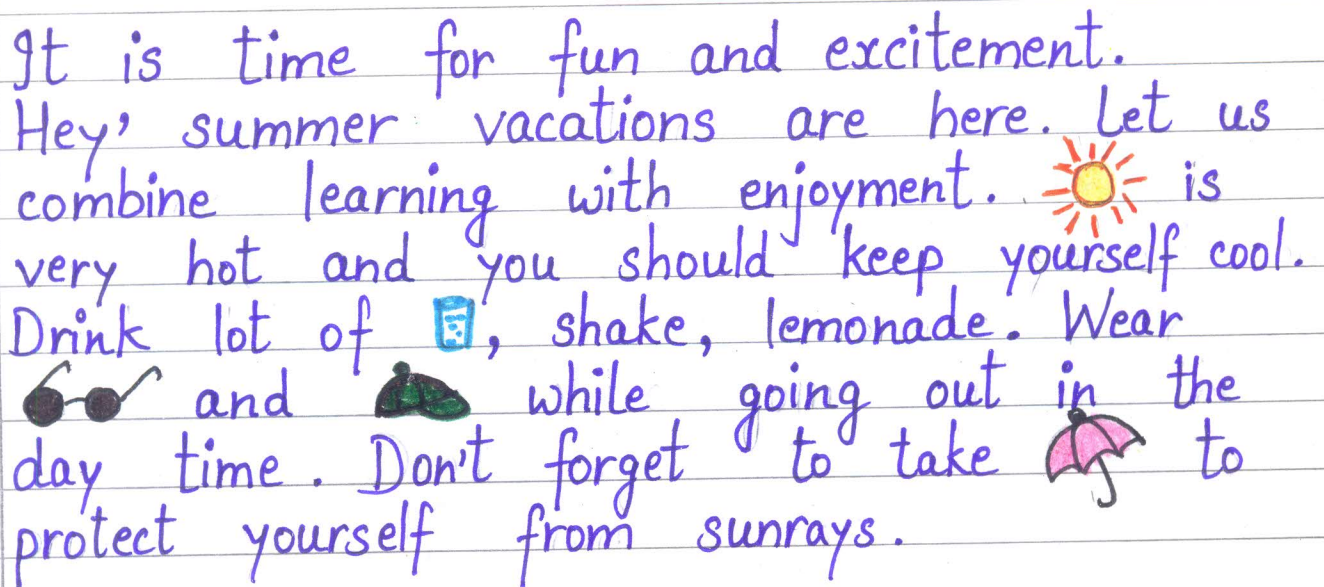 It is time for fun and excitement.
Hey' summer vacations are here. Let us
combine learning with enjoyment. is
very hot and you should keep yourself cool.
Drink lot of , shake, lemonade. Wear
and while going out in the
day time. Don't forget to take to
protect yourself from sunrays.